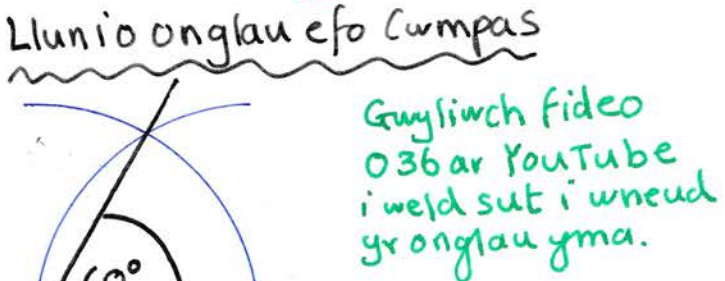 Llunio onglau efo Cwmpas
Gwyliwch fideo
036 ar YouTube
i weld sut i wneud
yr onglau yma.
60°